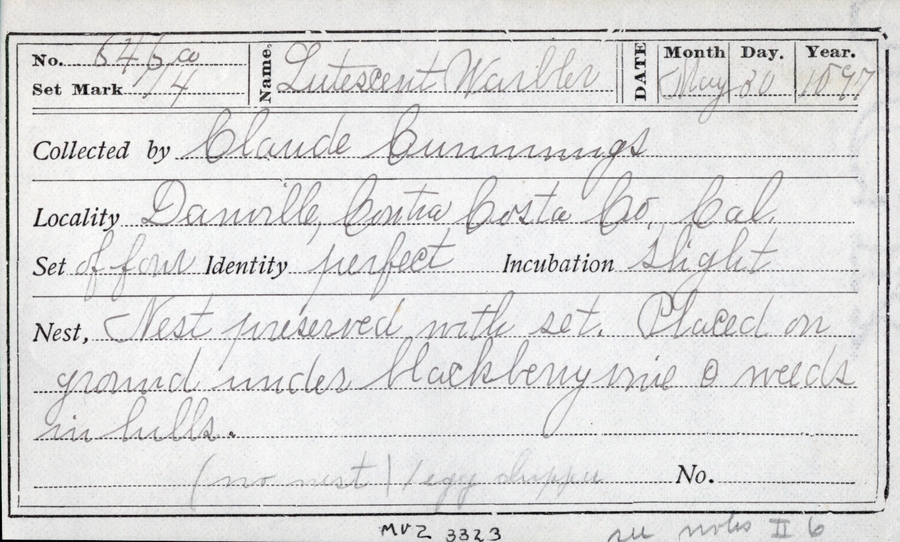 No. 646 a Name. Lutescent Warbler DATE Month Day. Year.
Set Mark 1/4 May 30 1897
Collected by Claude Cummings
Locality Danville, Contra Costa Co. Cal.
Set of four Identity perfect Incubation slight
Nest, Nest preserved with set. Placed on
ground under blackberry vine & weeds
in hills.
(no nest) 1 egg No.
MVZ 3323 see notes II 6